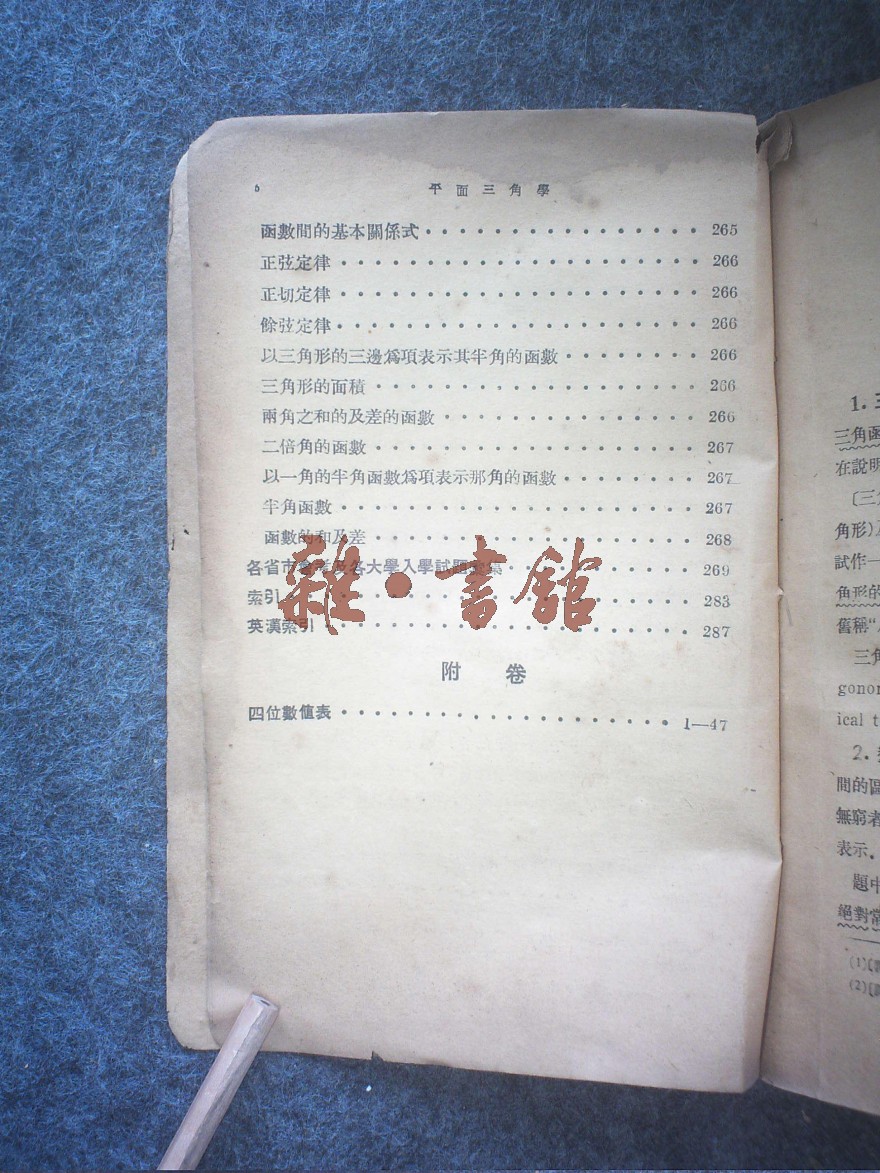 平面三角學
函數間的基本關係式 265
正弦定律 266
正切定律 266
餘弦定律 266
以三角形的三邊爲項表示其半角的函數 266
三角形的面積 266
兩角之和的及差的函數 266
二倍角的函數 267
以一角的半角函數爲項表示那角的函數 267
半角函數 267
函數的和及差 268
各省市會考及各大學入學試題彙集 269
索引 283
英漢索引 287
附卷
四位數值表 1—47
雜·書館
1.
三角函
在說明
〔三
角形)
試作一
角形的
舊稱“
三角
gonor
ical t
2.
間的區
無窮者
表示.
題中
絕對常
(1)
(2)